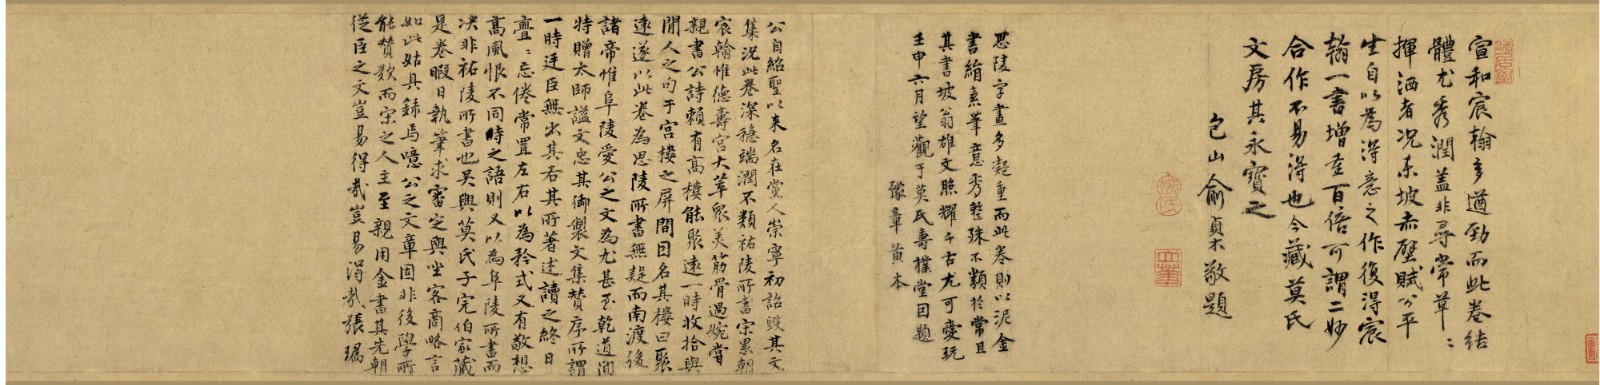 宣和宸翰多遒勁而此卷結
體尤秀潤蓋非尋常草〻
揮洒者况東坡赤壁賦公平
生自以為得意之作復得宸
翰一書增重百倍可謂二妙
合作不易得也今藏莫氏
文房其永寶之
包山俞貞木敬題
思陵字畫多凝重而此卷則以泥金
書絹素筆意秀整殊不類於常且
其書坡翁雄文照耀千古尤可愛玩
壬申六月望觀于莫氏壽樸堂因題
豫章黃本
公自紹聖以来名在黨人崇寧初詔毀其文
集况此卷深穩端潤不類祐陵所書宋累朝
宸翰惟德壽宮大萃衆美筋骨過婉嘗
親書公詩賴有高樓能聚遠一時收拾與
閒人之句于宮樓之屏間因名其樓曰聚
遠遂以此卷為思陵所書無疑而南渡後
諸帝惟阜陵愛公之文為尤甚至乾道間
特贈太師謚文忠其御製文集賛序所謂
一時廷臣無出其右其所著述讀之終日
亹〻忘倦常置左右以為矜式又有敬想
高風恨不同時之語則又以為阜陵所書而
决非祐陵所書也吳興莫氏子完伯家藏
是卷暇日執筆求審定與坐客商略言
如此姑具録焉噫公之文章固非後學所
能賛歎而宋之人主至親用金書其先朝
從臣之文豈易得哉豈易得哉張瑀